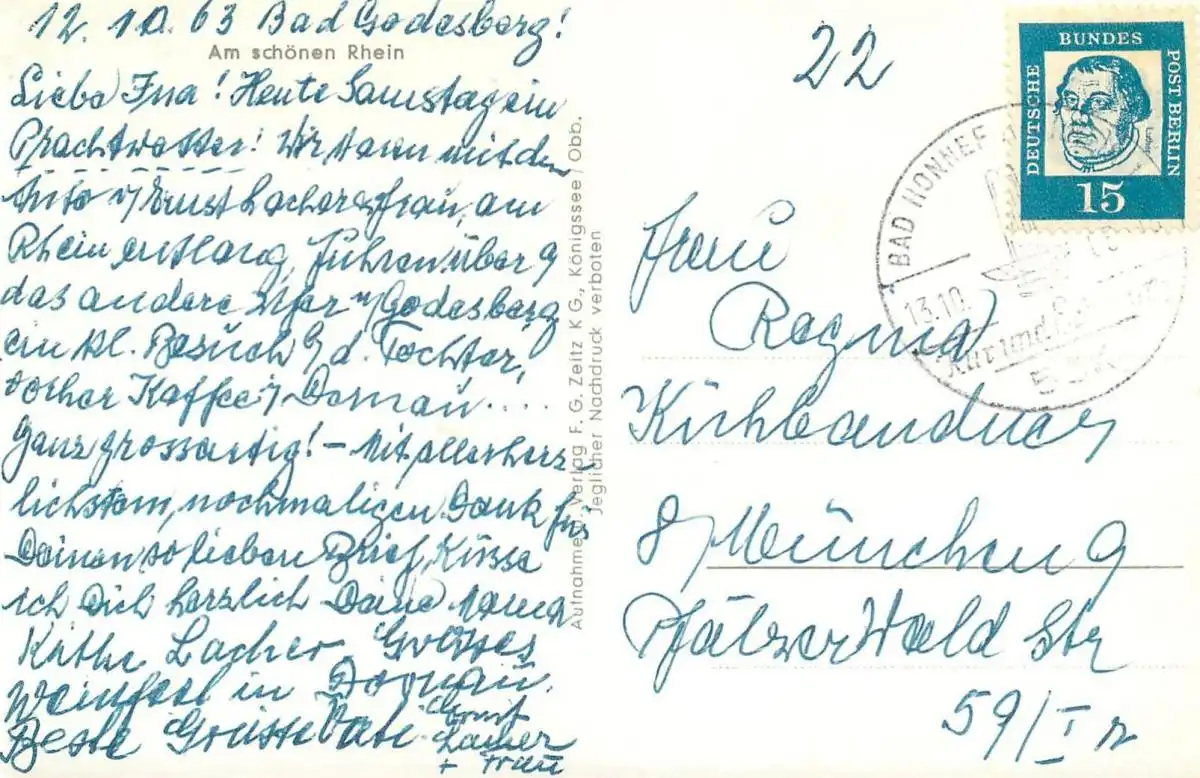 12. 10. 63 Bad Godesberg!
Am schönen Rhein
Liebe Ina! Heute Samstag ein
Prachtwetter! Wir waren mit dem
Auto Ernst Lacher Frau, am
Rhein entlang, führen über
das andere Ufer Godesberg
ein kl. Besuch d. Tochter,
vorher Kaffee
Ganz grossartig! – Mit allerherz-
lichstem, nochmaligen Dank für
Deinen so lieben Brief, Küsse
ich Dich herzlich Deine Mama
Käthe Lacher Grosses
Weinfest in
Beste Grüsse Ernst
Lacher
+ Frau
Aufnahme u. Verlag F. G. Zeitz KG., Königssee/Obb.
Jeglicher Nachdruck verboten
22
DEUTSCHE BUNDES POST BERLIN
15
BAD HONNEF
13.10.
Kur und
Frau
Regina
8 München 9
Pfälzer Wald Str
59/I r